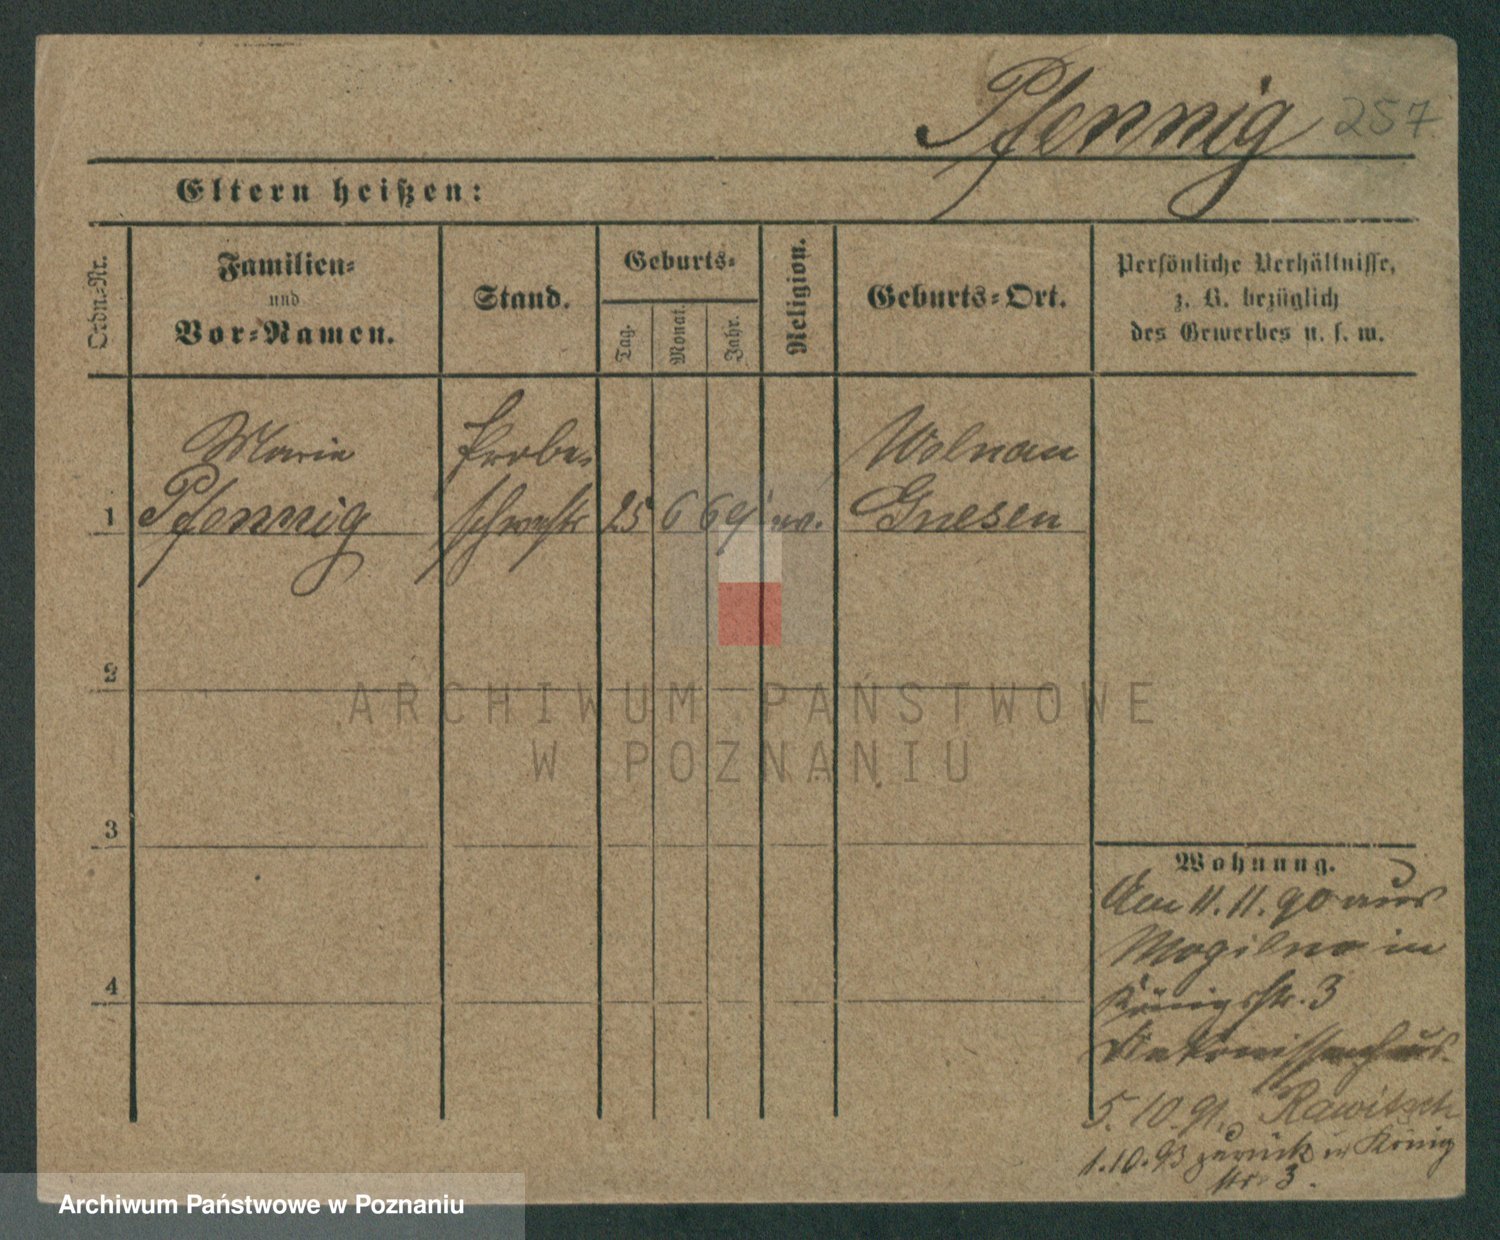 Pfennig 257
Eltern heißen:
Ordn.-Nr.
Familien-
und
Vor-Namen.
Stand.
Geburts-
Tag.
Monat.
Jahr.
Religion.
Geburts-Ort.
Persönliche Verhältnisse,
z. B. bezüglich
des Gewerbes u. s. w.
Marie Probe- Wolnau
1 Pfennig schwestr 25 6 69 ev. Gnesen
2
3
4
Wohnung.
Am 11.11.90 aus
Mogilno in
Königsstr. 3
Diakonissenhaus.
5.10.91. Rawitsch
1.10.93 zurück in König
str. 3.
ARCHIWUM PAŃSTWOWE
W POZNANIU
Archiwum Państwowe w Poznaniu